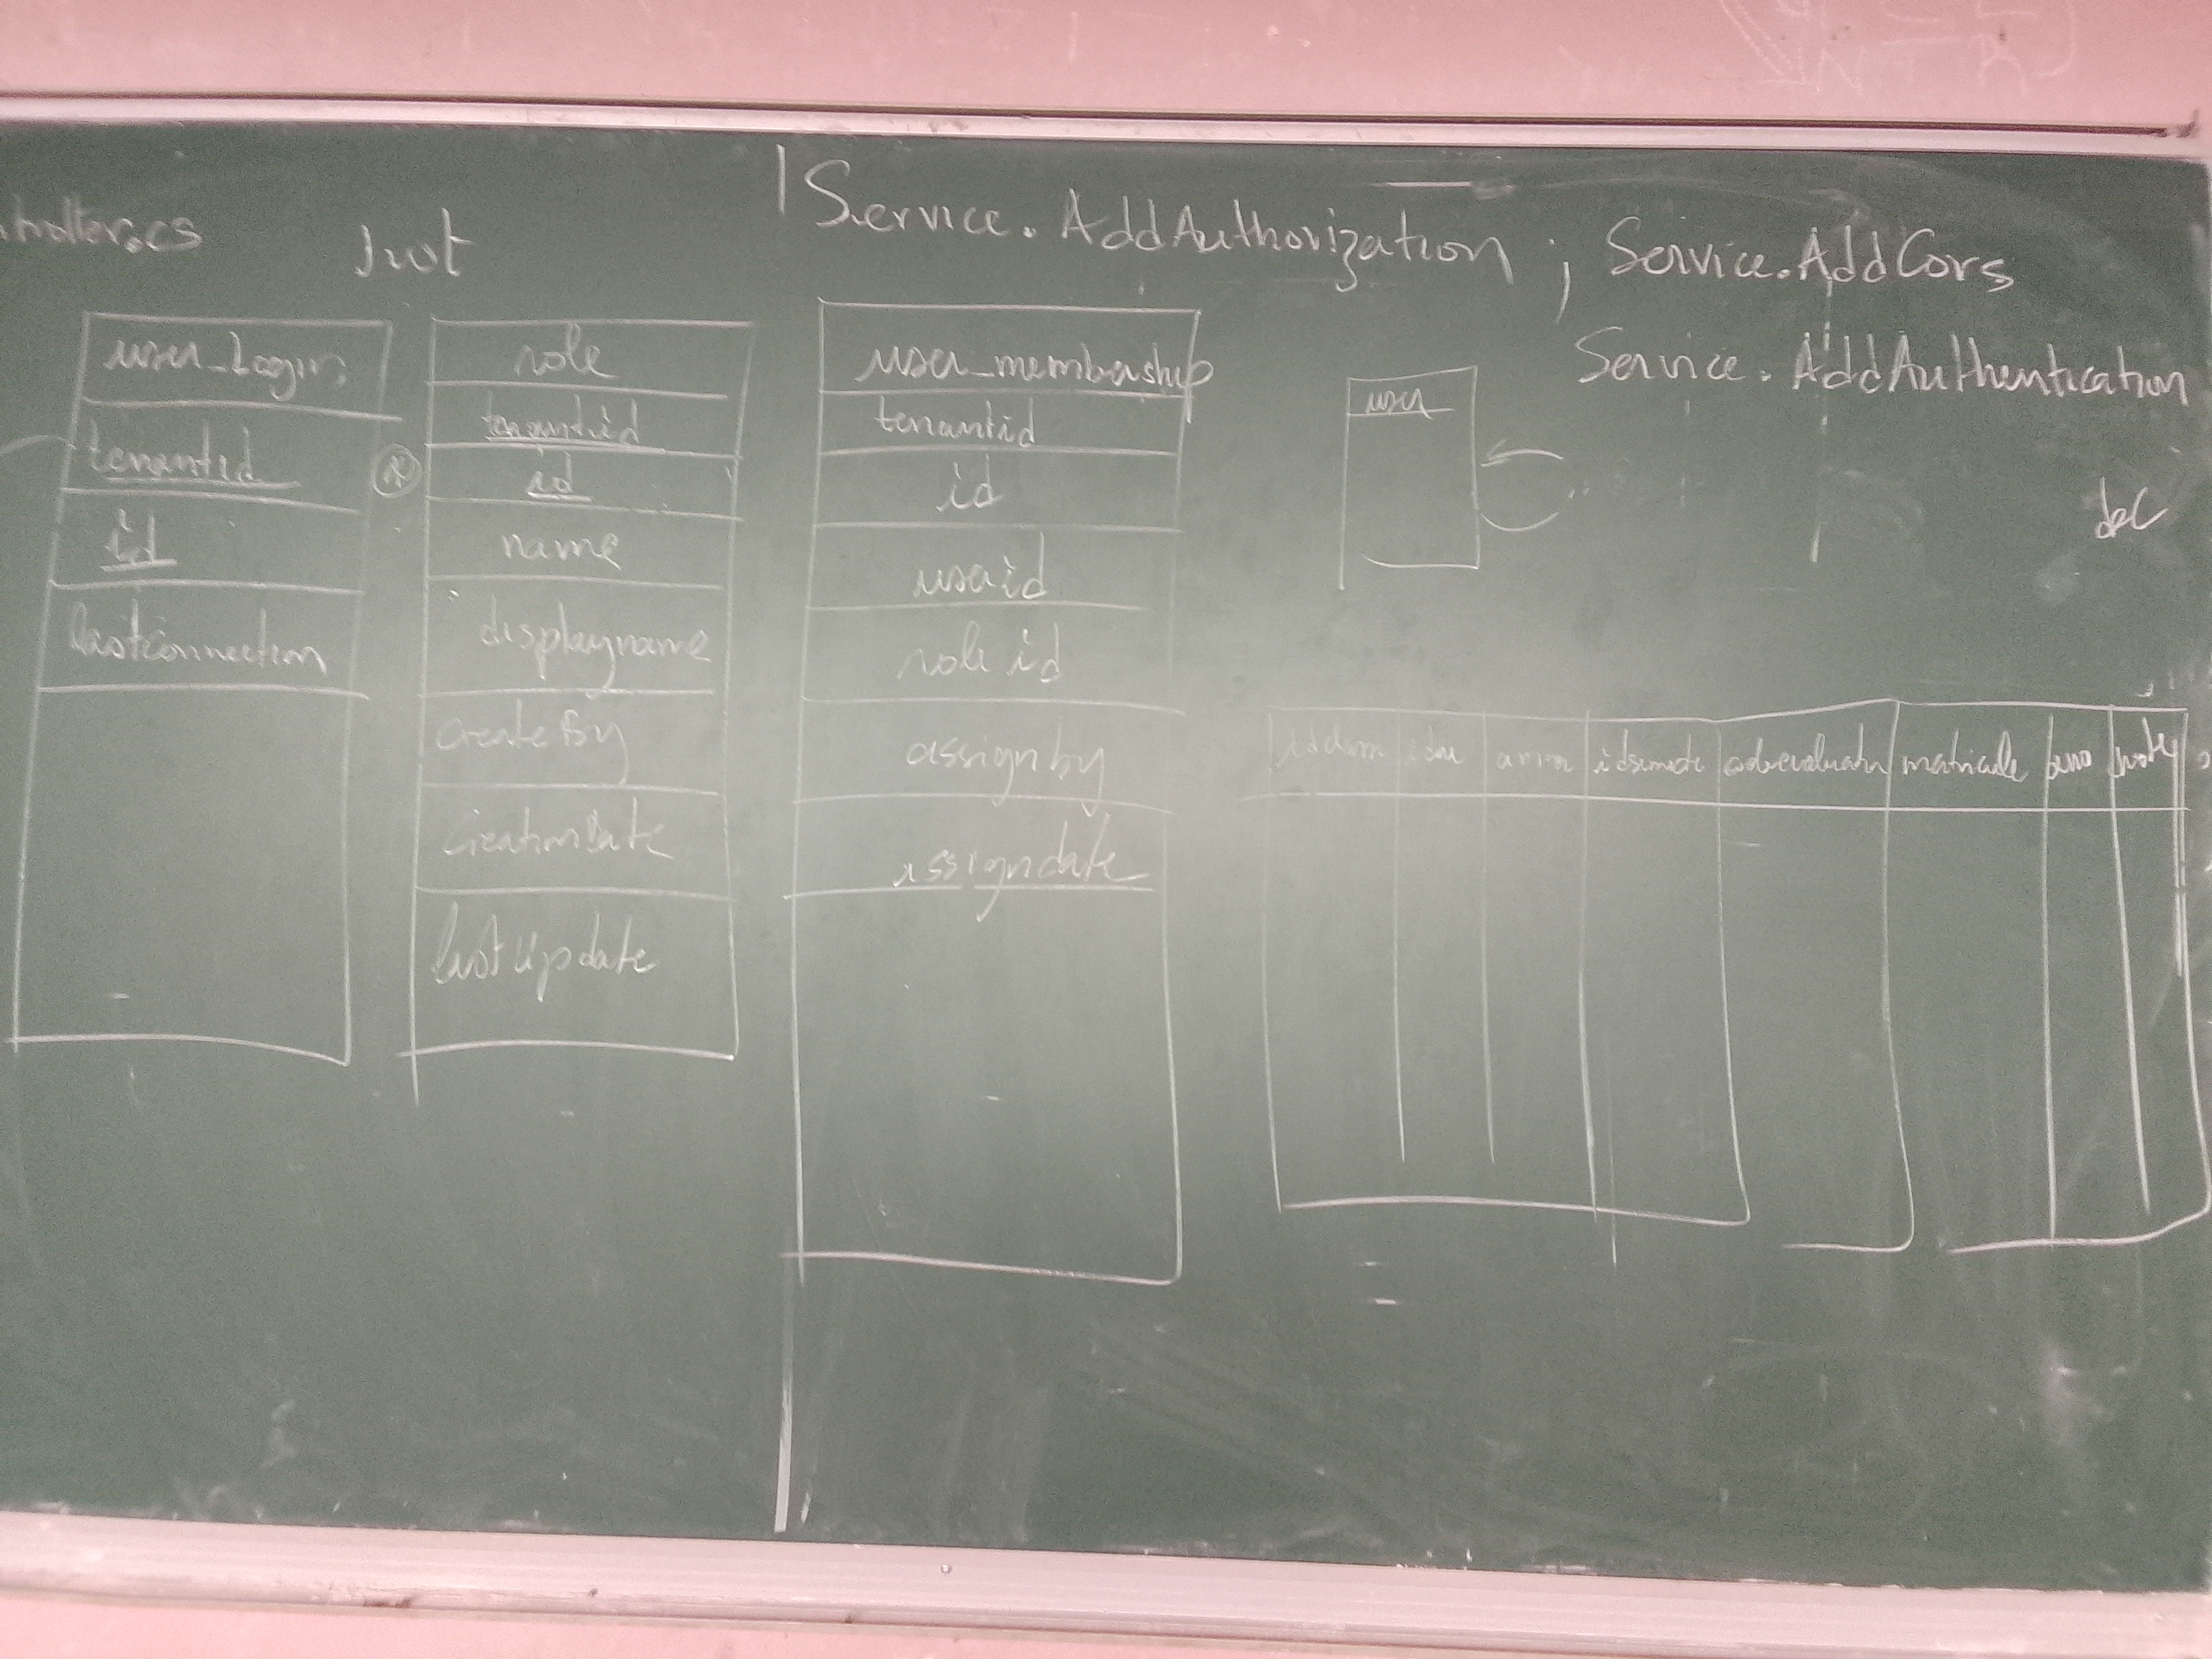 Service.AddAuthorization ; Service.AddCors
Service.AddAuthentication
user_Login
tenantid
id
lastconnection
role
tenantid
id
name
displayname
CreateBy
CreationDate
lastUpdate
user_membership
tenantid
id
userid
role id
assign by
assigndate
user
matricule